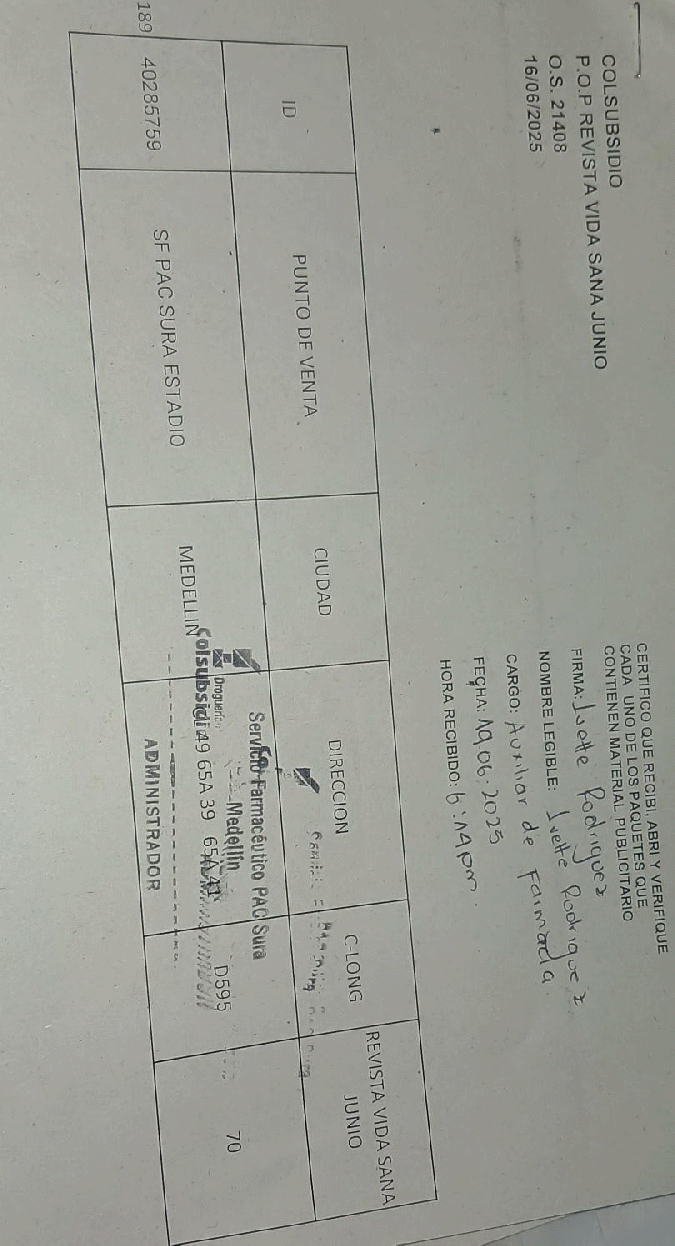 COLSUBSIDIO
P.O.P REVISTA VIDA SANA JUNIO
O.S. 21408
16/06/2025
CERTIFICO QUE RECIBI, ABRI Y VERIFIQUE
CADA UNO DE LOS PAQUETES QUE
CONTIENEN MATERIAL PUBLICITARIO
FIRMA: Ivette Rodriguez
NOMBRE LEGIBLE: Ivette Rodriguez
CARGO: Auxiliar de Farmacia
FECHA: 19.06.2025
HORA RECIBIDO: 6:14pm.
ID PUNTO DE VENTA CIUDAD DIRECCION C-LONG REVISTA VIDA SANA JUNIO
189 40285759 SF PAC SURA ESTADIO MEDELLIN 49 65A 39 65A 41 D595 70
Servicio Farmacéutico PAC Sura
Medellín
Droguerías
Colsubsidi
ADMINISTRADOR